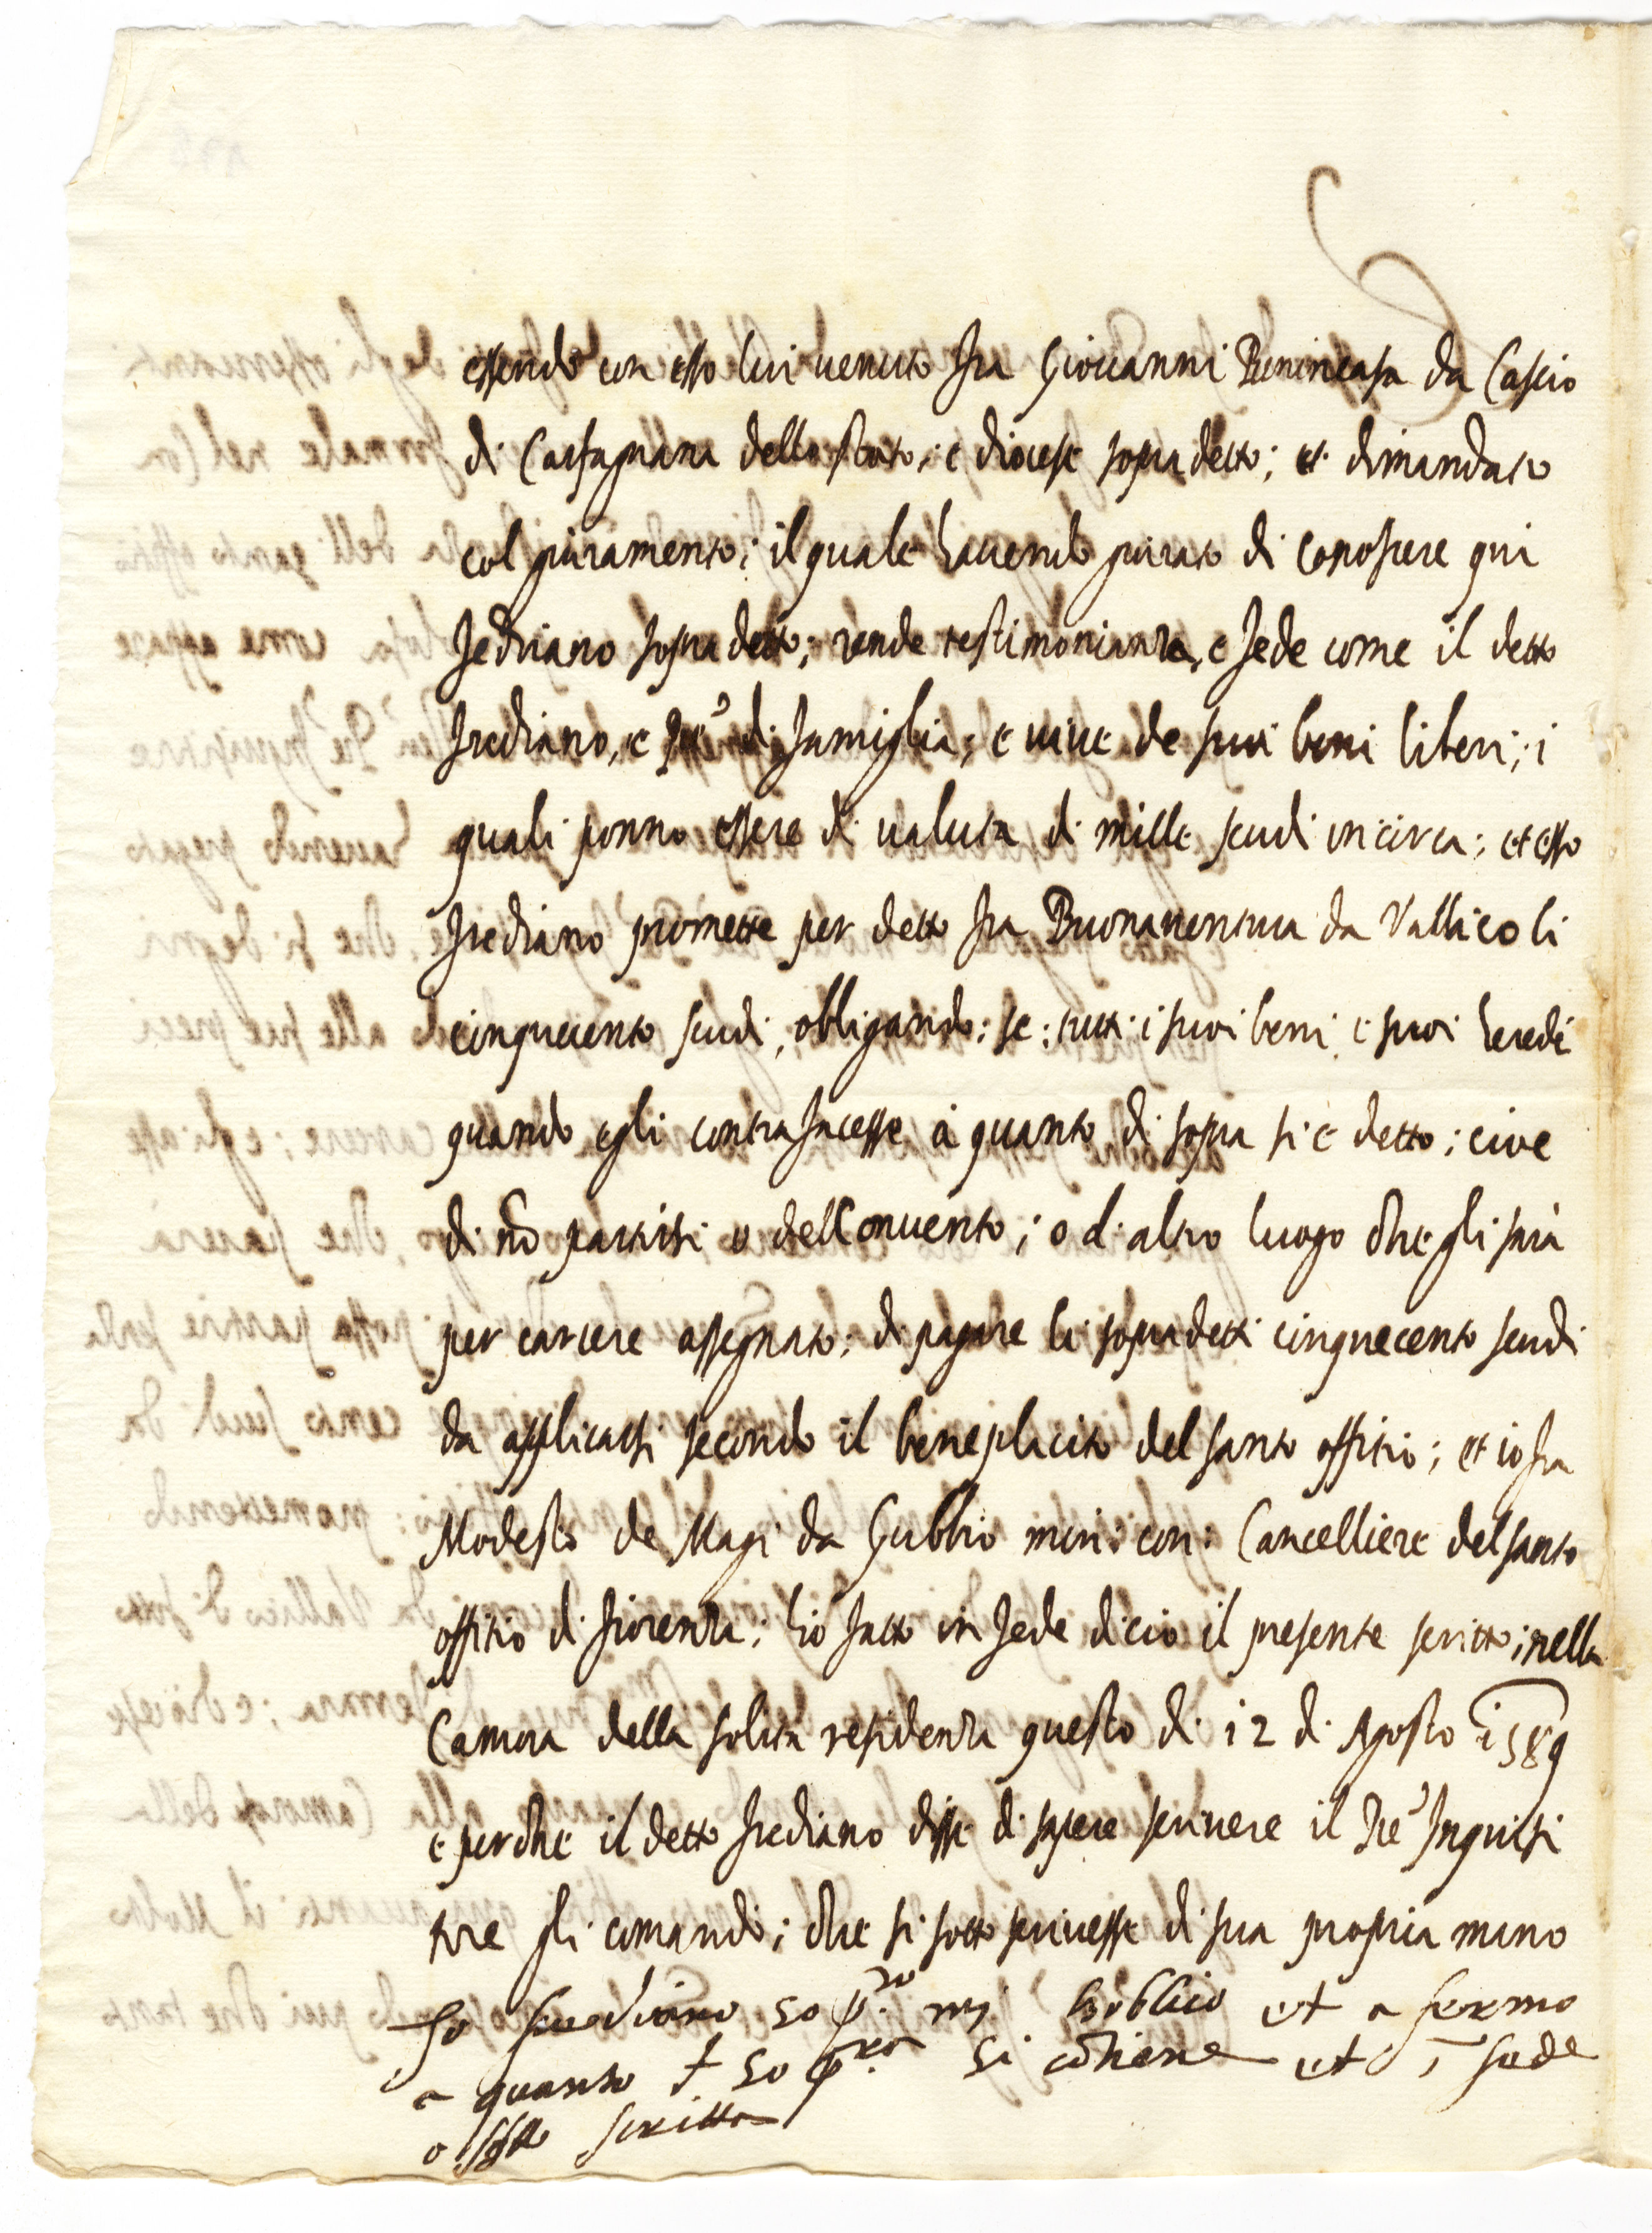 essendo con esso lui uenuto fra Giouanni Benincasa da Cascio
di Carfagnana dello stato, e diocese sopra detto; et dimandato
col giuramento; il quale hauendo giurato di conoscere qui
fediano sopra detto; rende testimonianza, e fede come il detto
frediano, e di famiglia; e uiue de suoi beni liberi; i
quali ponno essere di ualuta di mille scudi incirca; et esso
frediano promette per detto fra Buonauentura da Vallico li
cinquecento scudi, obligando: se: tutti i suoi beni e suoi heredi
quando egli contrafacesse à quanto di sopra si è detto; cioe
di nō partirsi o del Conuento; o d'altro luogo che gli sarà
per carcere assegnato; di pagare li sopradetti cinquecento scudi
da applicarsi secondo il beneplacito del santo offitio; et io fra
Modesto de Magi da Gubbio min: con: Cancelliere del santo
offitio di fiorenza; hò fatto in fede di ciò il presente scritto; nella
Camera della solita residenza questo dì i2 di Agosto i589
e perche il detto frediano disse di sapere scriuere il Pre' Inquisi
tore gli comandò; che si sotto scriuesse di sua propria mano
Io frediano so p.ro mi hobblico et a fermo
a quanto † so p.ra si cōtiene et ī fede
o sotto scritto